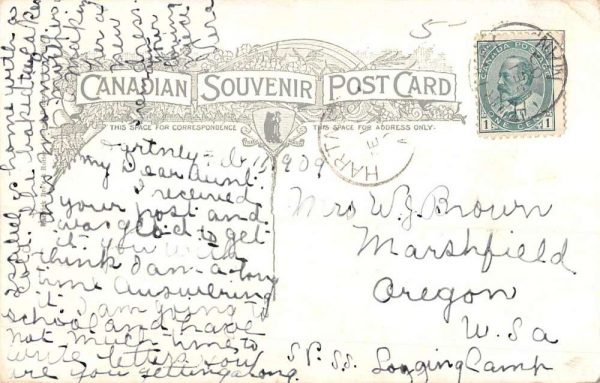 5-
CANADIAN SOUVENIR POST CARD
THIS SPACE FOR CORRESPONDENCE
THIS SPACE FOR ADDRESS ONLY.
CANADA POSTAGE
1 ONE CENT 1
HART
My Dear Aunt.
I received
your post and
was glad to get
it you will
think I am a long
time answering
it I am going to
school and have
not much time to
write letters you
are you getting along.
is home with a
cold. The baby takes
making
her a
new
dress.
Vera
Mrs W. J. Brown
Marshfield
Oregon
W. S a
S. P. SS. Logging Camp